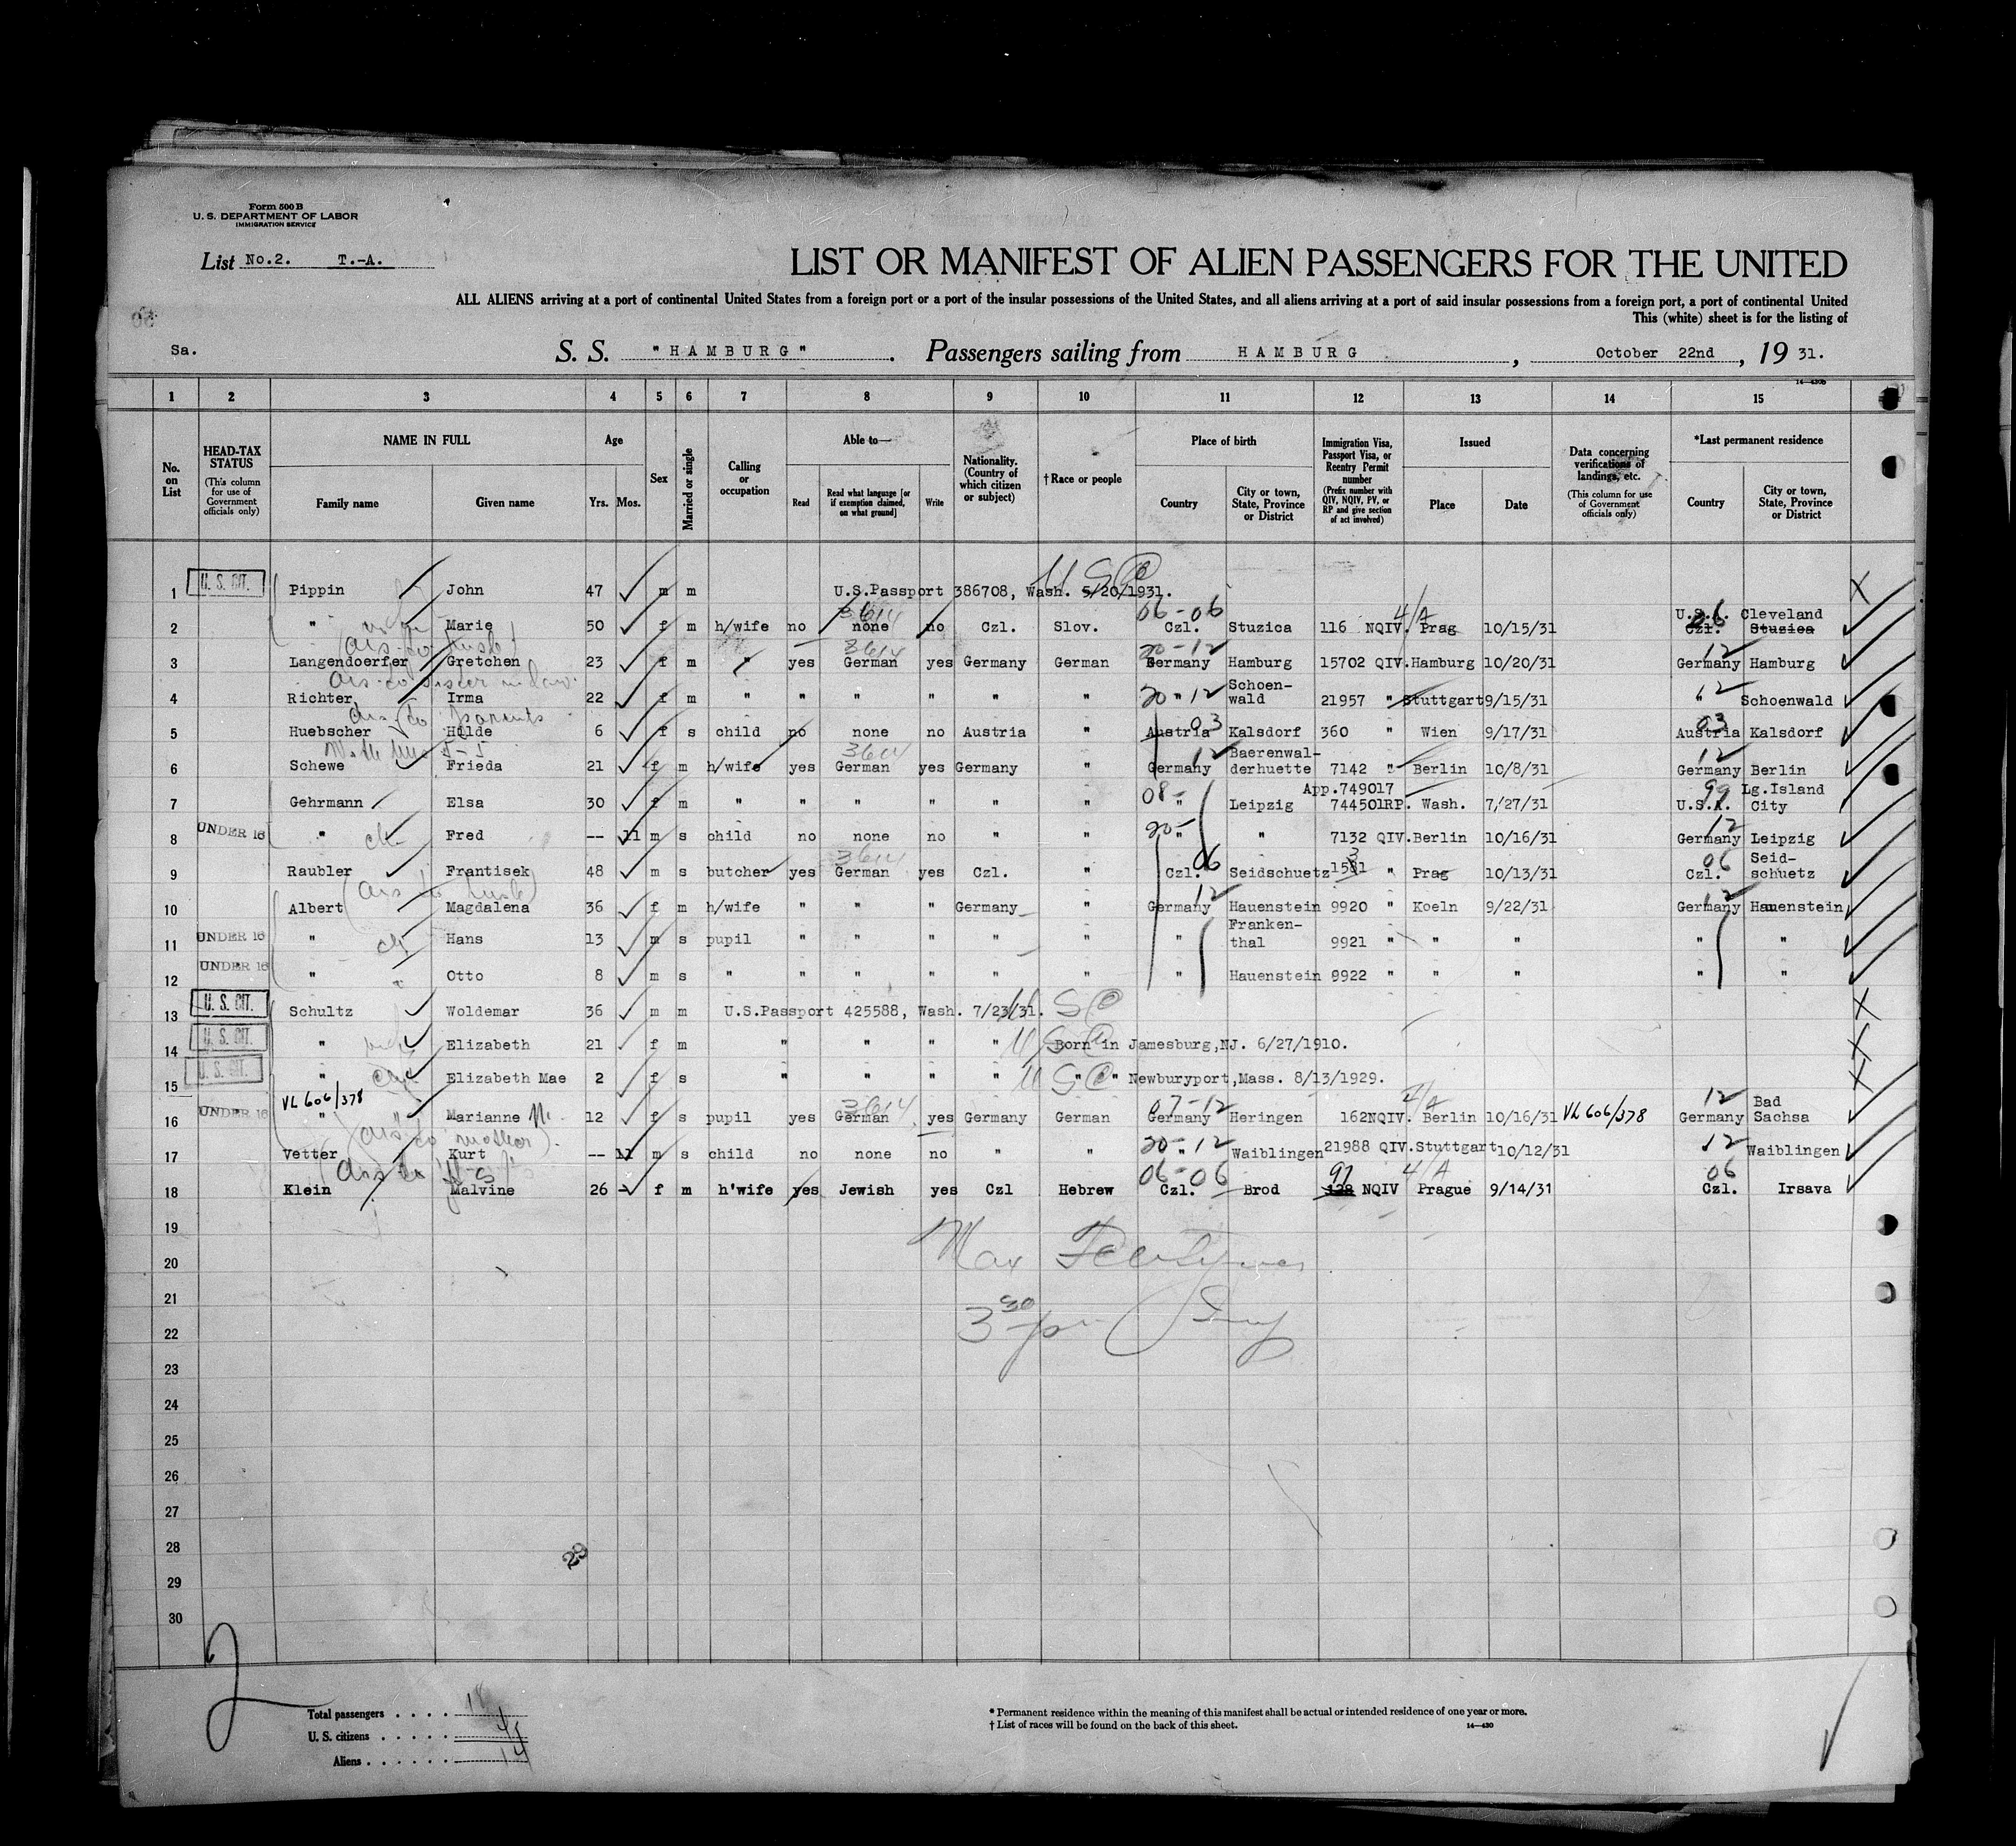 Form 500 B
U. S. DEPARTMENT OF LABOR
IMMIGRATION SERVICE
List No.2. T.-A.
LIST OR MANIFEST OF ALIEN PASSENGERS FOR THE UNITED
ALL ALIENS arriving at a port of continental United States from a foreign port or a port of the insular possessions of the United States, and all aliens arriving at a port of said insular possessions from a foreign port, a port of continental United
This (white) sheet is for the listing of
Sa.
S. S. "HAMBURG". Passengers sailing from HAMBURG, October 22nd, 19 31.
14—430b
1 2 3 4 5 6 7 8 9 10 11 12 13 14 15
No. on List
HEAD-TAX STATUS (This column for use of Government officials only)
NAME IN FULL Family name Given name
Age Yrs. Mos.
Sex
Married or single
Calling or occupation
Able to— Read Read what language [or if exemption claimed, on what ground] Write
Nationality. (Country of which citizen or subject)
† Race or people
Place of birth Country City or town, State, Province or District
Immigration Visa, Passport Visa, or Reentry Permit number (Prefix number with QIV, NQIV, PV, or RP and give section of act involved)
Issued Place Date
Data concerning verifications of landings, etc. (This column for use of Government officials only)
*Last permanent residence Country City or town, State, Province or District
1 U. S. CIT. Pippin John 47 m m U.S.Passport 386708, Wash. 5/20/1931. USC
2 " Marie 50 f m h/wife no none no Czl. Slov. 06-06 Czl. Stuzica 116 NQIV. 4/A Prag 10/15/31 U.S.A. Czl. Cleveland Stuzica
3 Langendoerfer Gretchen 23 f m " yes German 3614 yes Germany German 20-12 Germany Hamburg 15702 QIV. Hamburg 10/20/31 12 Germany Hamburg
4 Richter Irma 22 f m " " " " " " 20 " 12 Schoen-wald 21957 " Stuttgart 9/15/31 " 12 Schoenwald
5 Huebscher Hilde 6 f s child no none no Austria " Austria 03 Kalsdorf 360 " Wien 9/17/31 03 Austria Kalsdorf
6 Schewe Frieda 21 f m h/wife yes German 3614 yes Germany " 12 Germany Baerenwal-derhuette 7142 " Berlin 10/8/31 12 Germany Berlin
7 Gehrmann Elsa 30 f m " " " " " " 08- " Leipzig App.749017 744501RP. Wash. 7/27/31 99 U.S.A. Lg.Island City
8 UNDER 16 " Fred -- 11 m s child no none no " " 20- " " 7132 QIV. Berlin 10/16/31 12 Germany Leipzig
9 Raubler Frantisek 48 m s butcher yes German 3614 yes Czl. " 06 Czl. Seidschuetz 1531 " Prag 10/13/31 06 Czl. Seid-schuetz
10 Albert Magdalena 36 f m h/wife " " " Germany " 12 Germany Hauenstein 9920 " Koeln 9/22/31 12 Germany Hauenstein
11 UNDER 16 " Hans 13 m s pupil " " " " " " Franken-thal 9921 " " " " "
12 UNDER 16 " Otto 8 m s " " " " " " " Hauenstein 9922 " " " " "
13 U. S. CIT. Schultz Woldemar 36 m m U.S.Passport 425588, Wash. 7/23/31. USC
14 U. S. CIT. " Elizabeth 21 f m " " " " Born in Jamesburg,NJ. 6/27/1910.
15 U. S. CIT. " Elizabeth Mae 2 f s " " " " " " Newburyport,Mass. 8/13/1929.
VL 606/378
16 UNDER 16 " Marianne 12 f s pupil yes German 3614 yes Germany German 07-12 Germany Heringen 162NQIV. 4/A Berlin 10/16/31 VL 606/378 12 Germany Bad Sachsa
17 Vetter Kurt -- 11 m s child no none no " " 20-12 " Waiblingen 21988 QIV. Stuttgart 10/12/31 12 Waiblingen
18 Klein Malvine 26 - f m h'wife yes Jewish yes Czl Hebrew 06-06 Czl. Brod 97 NQIV 4/A Prague 9/14/31 06 Czl. Irsava
19
20 Max
21
22 3 30 pm
23
24
25
26
27
28
29
30
29
2
Total passengers . . . . 18
U. S. citizens . . . . . 4
Aliens . . . . . . 14
* Permanent residence within the meaning of this manifest shall be actual or intended residence of one year or more.
† List of races will be found on the back of this sheet.
14—430